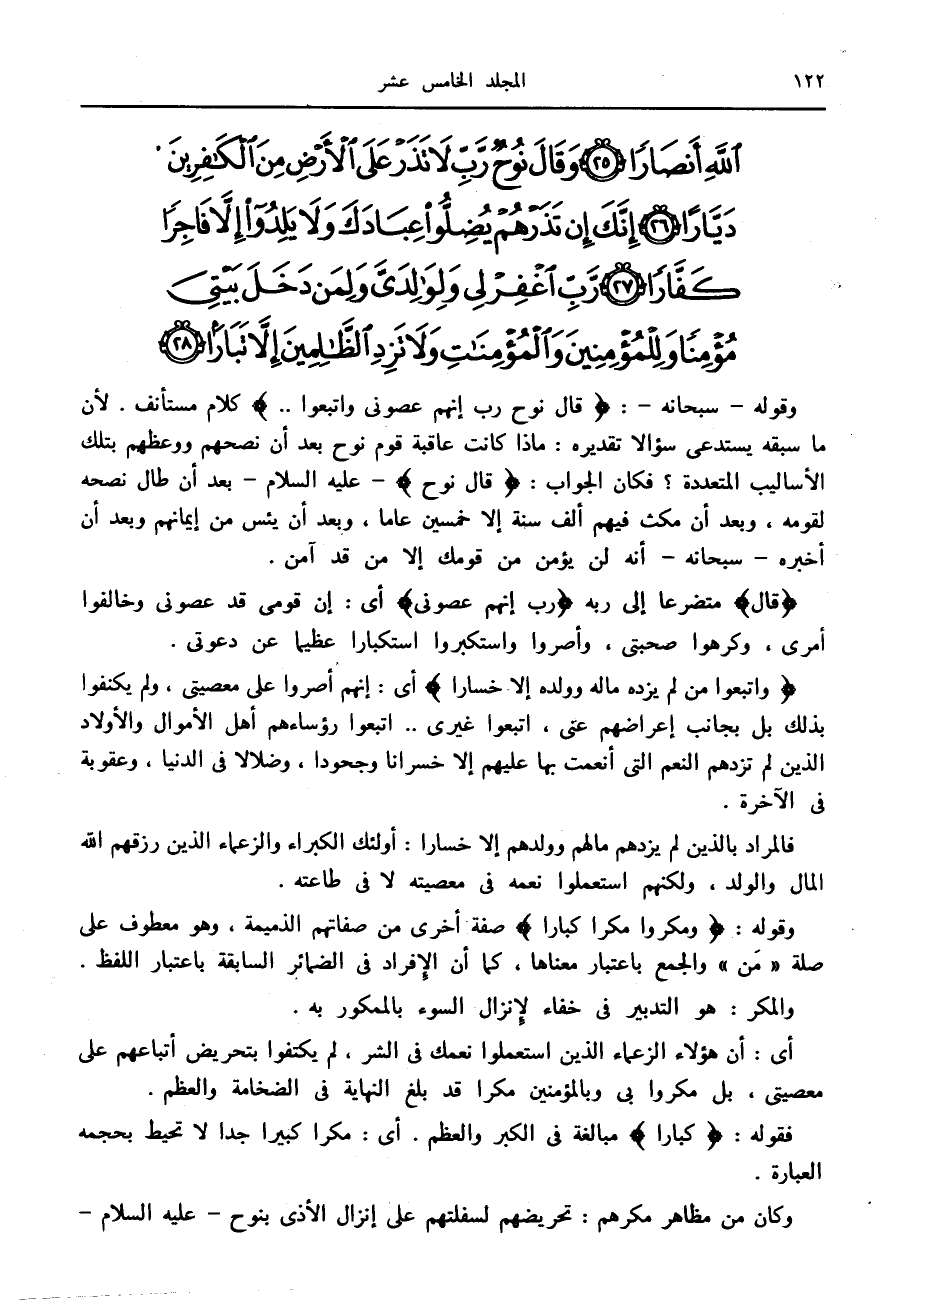 ١٢٢ المجلد الخامس عشر
ٱللَّهِ أَنصَارًا ﴿٢٥﴾ وَقَالَ نُوحٌ رَّبِّ لَا تَذَرْ عَلَى ٱلْأَرْضِ مِنَ ٱلْكَٰفِرِينَ
دَيَّارًا ﴿٢٦﴾ إِنَّكَ إِن تَذَرْهُمْ يُضِلُّوا۟ عِبَادَكَ وَلَا يَلِدُوٓا۟ إِلَّا فَاجِرًا
كَفَّارًا ﴿٢٧﴾ رَّبِّ ٱغْفِرْ لِى وَلِوَٰلِدَىَّ وَلِمَن دَخَلَ بَيْتِىَ
مُؤْمِنًا وَلِلْمُؤْمِنِينَ وَٱلْمُؤْمِنَٰتِ وَلَا تَزِدِ ٱلظَّٰلِمِينَ إِلَّا تَبَارًۢا ﴿٢٨﴾
وقوله – سبحانه – : ﴿ قال نوح رب إنهم عصونى واتبعوا .. ﴾ كلام مستأنف . لأن
ما سبقه يستدعى سؤالا تقديره : ماذا كانت عاقبة قوم نوح بعد أن نصحهم ووعظهم بتلك
الأساليب المتعددة ؟ فكان الجواب : ﴿ قال نوح ﴾ – عليه السلام – بعد أن طال نصحه
لقومه ، وبعد أن مكث فيهم ألف سنة إلا خمسين عاما ، وبعد أن يئس من إيمانهم وبعد أن
أخبره – سبحانه – أنه لن يؤمن من قومك إلا من قد آمن .
﴿قال﴾ متضرعا إلى ربه ﴿رب إنهم عصونى﴾ أى : إن قومى قد عصونى وخالفوا
أمرى ، وكرهوا صحبتى ، وأصروا واستكبروا استكبارا عظيما عن دعوتى .
﴿ واتبعوا من لم يزده ماله وولده إلا خسارا ﴾ أى : إنهم أصروا على معصيتى ، ولم يكتفوا
بذلك بل بجانب إعراضهم عنى ، اتبعوا غيرى .. اتبعوا رؤساءهم أهل الأموال والأولاد
الذين لم تزدهم النعم التى أنعمت بها عليهم إلا خسرانا وجحودا ، وضلالا فى الدنيا ، وعقوبة
فى الآخرة .
فالمراد بالذين لم يزدهم مالهم وولدهم إلا خسارا : أولئك الكبراء والزعماء الذين رزقهم الله
المال والولد ، ولكنهم استعملوا نعمه فى معصيته لا فى طاعته .
وقوله : ﴿ ومكروا مكرا كبارا ﴾ صفة أخرى من صفاتهم الذميمة ، وهو معطوف على
صلة « مَن » والجمع باعتبار معناها ، كما أن الإفراد فى الضمائر السابقة باعتبار اللفظ .
والمكر : هو التدبير فى خفاء لإنزال السوء بالممكور به .
أى : أن هؤلاء الزعماء الذين استعملوا نعمك فى الشر ، لم يكتفوا بتحريض أتباعهم على
معصيتى ، بل مكروا بى وبالمؤمنين مكرا قد بلغ النهاية فى الضخامة والعظم .
فقوله : ﴿ كبارا ﴾ مبالغة فى الكبر والعظم . أى : مكرا كبيرا جدا لا تحيط بحجمه
العبارة .
وكان من مظاهر مكرهم : تحريضهم لسفلتهم على إنزال الأذى بنوح – عليه السلام –